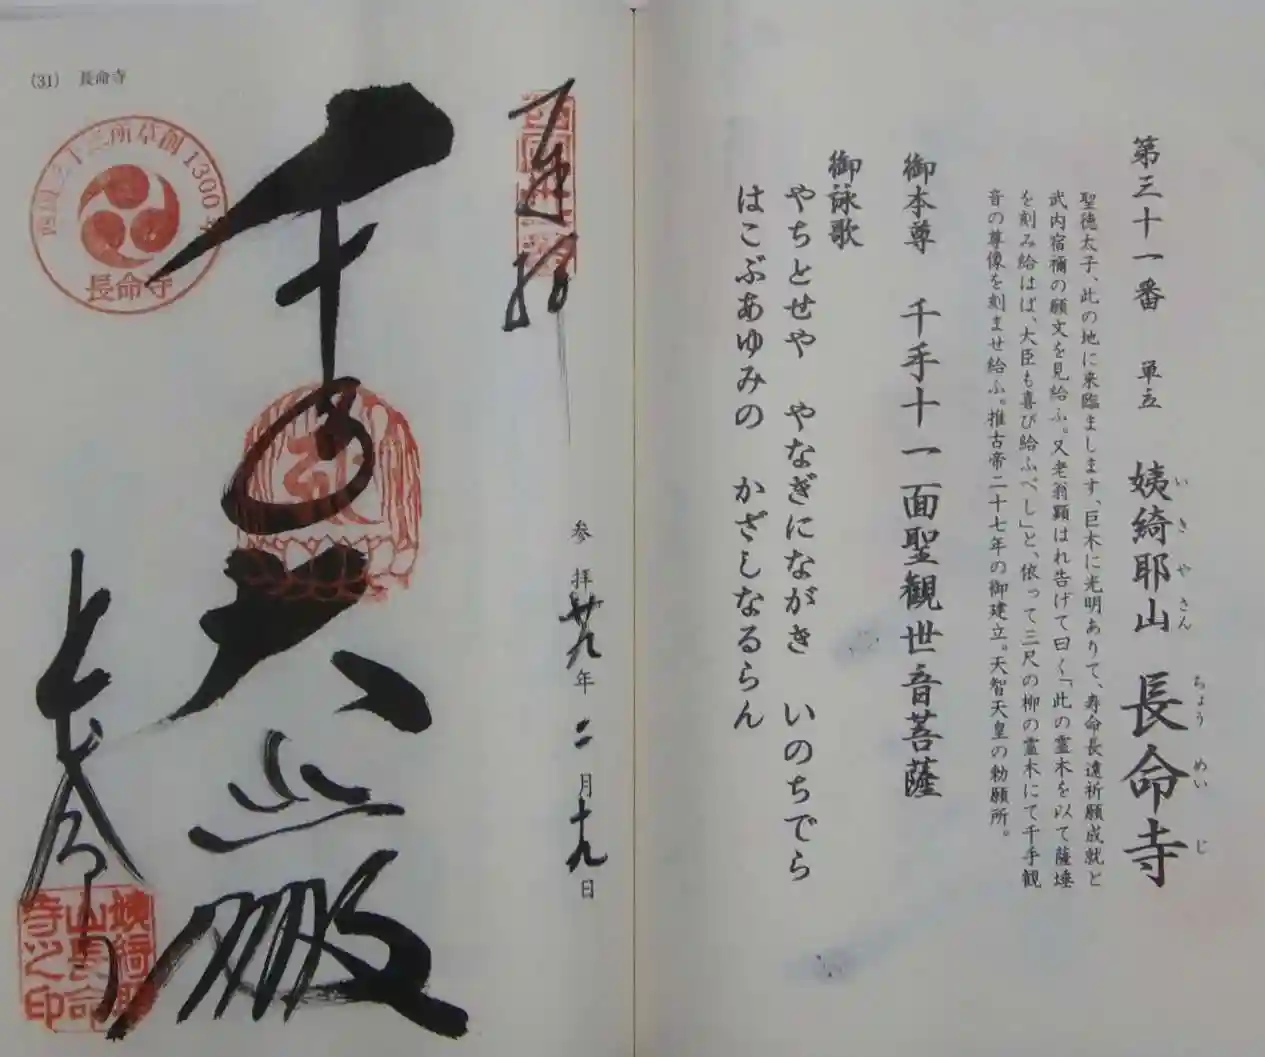 第三十一番 単立 姨綺耶山 長命寺
いきやさん ちょうめいじ
聖徳太子、此の地に来臨まします、巨木に光明ありて、寿命長遠祈願成就と
武内宿禰の願文を見給ふ。又老翁顕はれ告げて曰く「此の霊木を以て薩埵
を刻み給はば、大臣も喜び給ふべし」と、依って三尺の柳の霊木にて千手観
音の尊像を刻ませ給ふ。推古帝二十七年の御建立。天智天皇の勅願所。
御本尊 千手十一面聖観世音菩薩
御詠歌
やちとせや やなぎにながき いのちでら
はこぶあゆみの かざしなるらん
(31) 長命寺
参拝廿九年二月十九日
西国三十三所草創1300年
長命寺
姨綺耶
山長命
寺之印